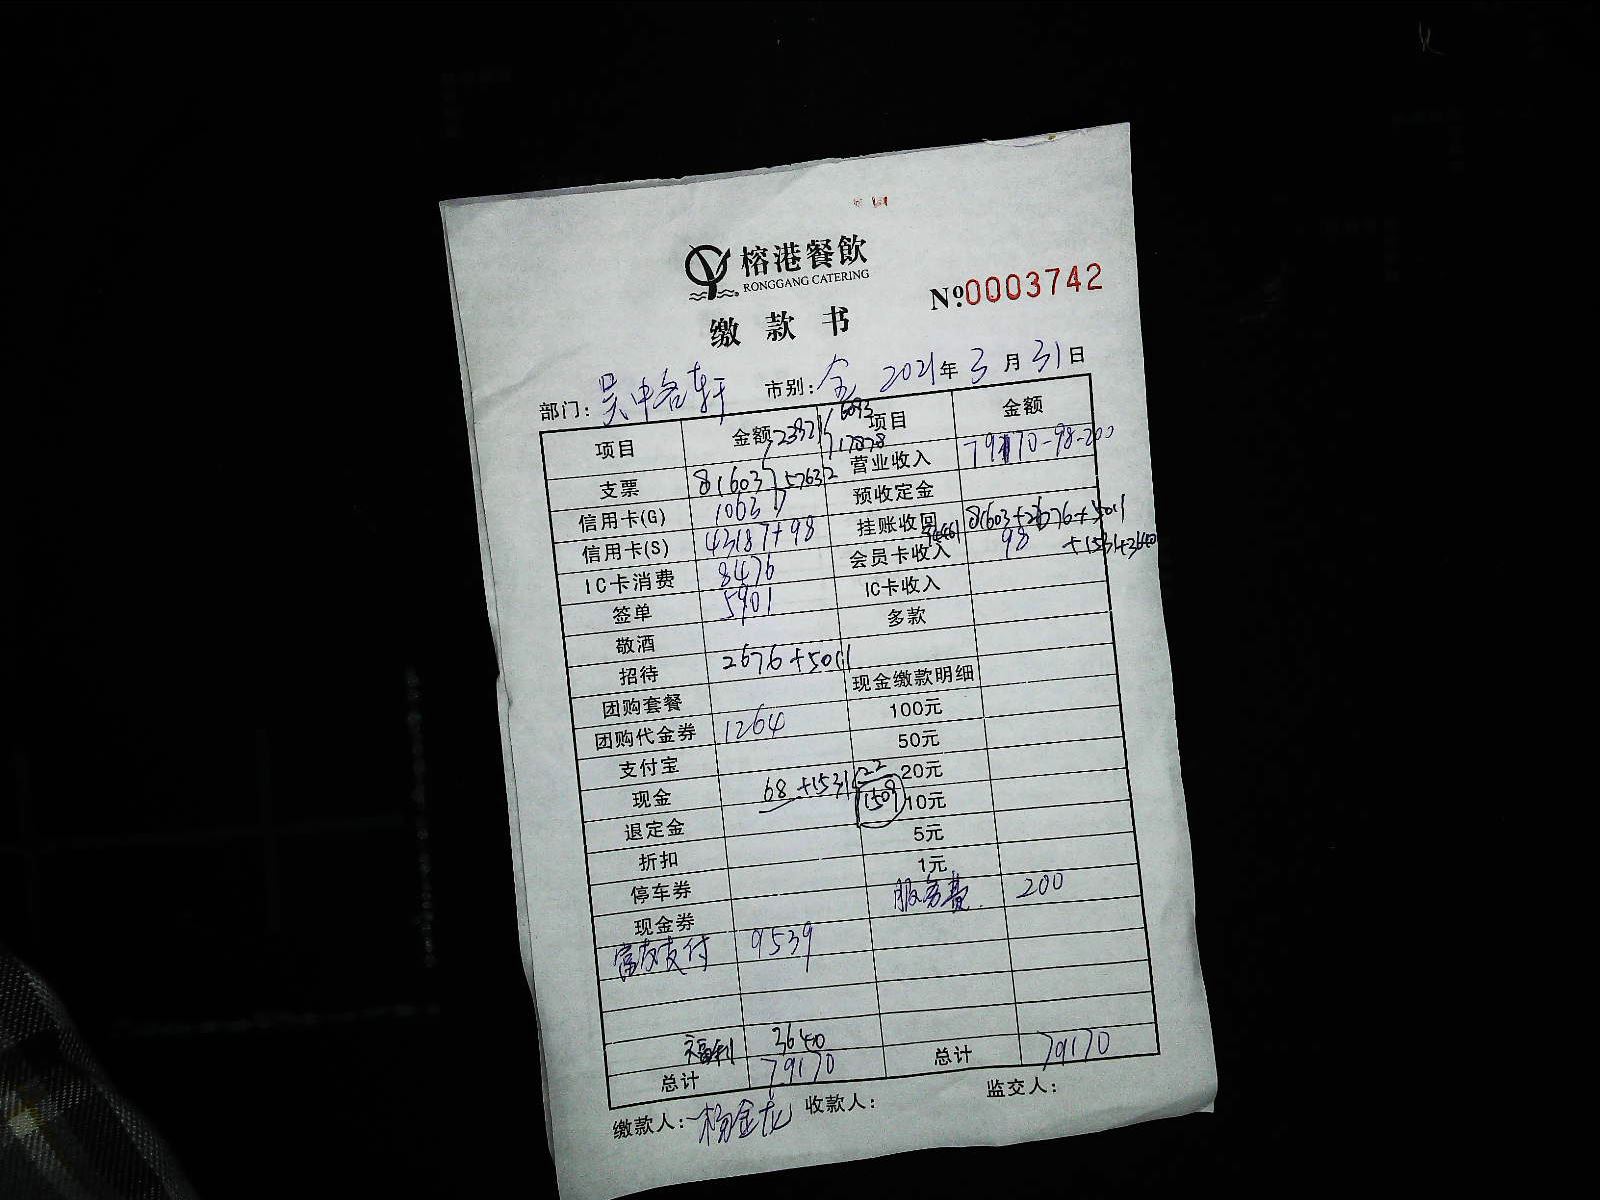 榕港餐飲
RONGGANG CATERING
№0003742
缴款书
部门: 吴中名轩 市别: 全 2021年3月31日
项目 金额 23921 16093 项目 金额
支票 81603 57632 17878 营业收入 79170-98-200
信用卡(G) 10637 预收定金
信用卡(S) 43187+98 挂账收回 81603+2676+5011
+1531+3640
IC卡消费 8476 会员卡收入 98
签单 5901 IC卡收入
敬酒 多款
招待 2676+5011
团购套餐 现金缴款明细
团购代金券 1264 100元
支付宝 50元
现金 68+1531 22 20元
退定金 1509 10元
折扣 5元
停车券 1元
现金券 服务费 200
富友支付 9539
福利 3640
总计 79170 总计 79170
缴款人: 杨金龙 收款人: 监交人: